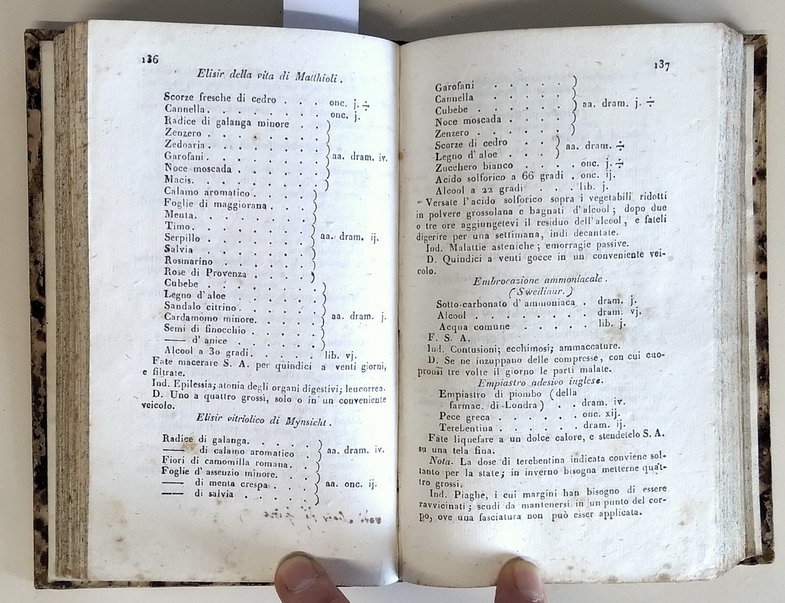 136
Elisir della vita di Matthioli.
Scorze fresche di cedro . . . onc. j. ÷
Cannella . . . . . . . . onc. j.
Radice di galanga minore . . .
Zenzero . . . . . . . .
Zedoaria . . . . . . . .
Garofani . . . . . . . . aa. dram. iv.
Noce moscada . . . . . .
Macis. . . . . . . . .
Calamo aromatico . . . . .
Foglie di maggiorana . . . .
Menta. . . . . . . . .
Timo. . . . . . . . .
Serpillo . . . . . . . . aa. dram. ij.
Salvia . . . . . . . .
Rosmarino . . . . . . .
Rose di Provenza . . . . .
Cubebe . . . . . . . .
Legno d'aloe . . . . . .
Sandalo citrino . . . . . .
Cardamomo minore. . . . . aa. dram. j.
Semi di finocchio . . . . .
—— d'anice . . . . .
Alcool a 30 gradi. . . . . lib. vj.
Fate macerare S. A. per quindici a venti giorni,
e filtrate.
Ind. Epilessia; atonia degli organi digestivi; leucorrea.
D. Uno a quattro grossi, solo o in un conveniente
veicolo.
Elisir vitriolico di Mynsicht.
Radice di galanga. . . . .
—— di calamo aromatico . . aa. dram. iv.
Fiori di camomilla romana. . .
Foglie d'assenzio minore. . . .
—— di menta crespa . . . . aa. onc. ij.
—— di salvia . . . . . .
137
Garofani . . . . . .
Cannella . . . . . .
Cubebe . . . . . . aa. dram. j. ÷
Noce moscada . . . .
Zenzero . . . . . .
Scorze di cedro . . . . aa. dram. ÷
Legno d'aloe . . . .
Zucchero bianco . . . . onc. j. ÷
Acido solforico a 66 gradi . onc. ij.
Alcool a 22 gradi . . . lib. j.
Versate l'acido solforico sopra i vegetabili ridotti
in polvere grossolana e bagnati d'alcool; dopo due
o tre ore aggiungetevi il residuo dell'alcool, e fateli
digerire per una settimana, indi decantate.
Ind. Malattie asteniche; emorragie passive.
D. Quindici a venti gocce in un conveniente vei-
colo.
Embrocazione ammoniacale.
(Swediaur.)
Sotto-carbonato d'ammoniaca . dram. j.
Alcool . . . . . . . dram. vj.
Acqua comune . . . . . lib. j.
F. S. A.
Ind. Contusioni; ecchimosi; ammaccature.
D. Se ne inzuppano delle compresse, con cui cuo-
pronsi tre volte il giorno le parti malate.
Empiastro adesivo inglese.
Empiastro di piombo (della
farmac. di Londra) . . dram. iv.
Pece greca . . . . . . onc. xij.
Terebentina . . . . . . dram. ij.
Fate liquefare a un dolce calore, e stendetelo S. A.
su una tela fina.
Nota. La dose di terebentina indicata conviene sol-
tanto per la state; in inverno bisogna metterne quat-
tro grossi.
Ind. Piaghe, i cui margini han bisogno di essere
ravvicinati; scudi da mantenersi in un punto del cor-
po, ove una fasciatura non può esser applicata.